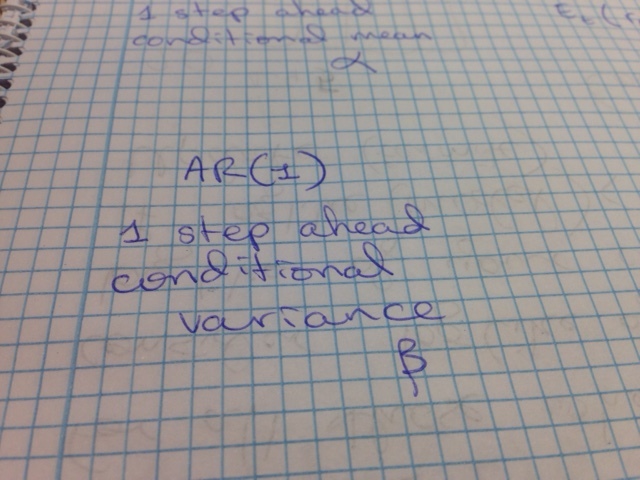 1 step ahead
conditional mean
α
AR(1)
1 step ahead
conditional
variance
β